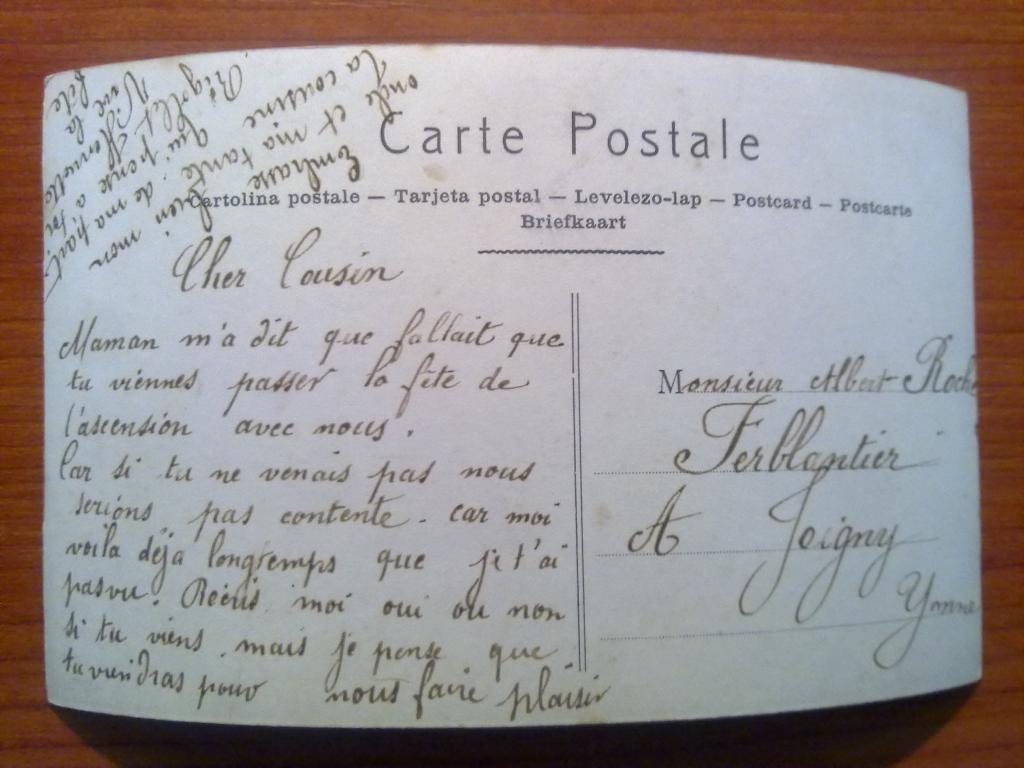 Carte Postale
Cartolina postale — Tarjeta postal — Levelezo-lap — Postcard — Postcarte
Briefkaart
Cher Cousin
Maman m'a dit que fallait que
tu viennes passer la fête de
l'ascension avec nous.
Car si tu ne venais pas nous
serions pas contente. car moi
voila déja longtemps que je t'ai
pas vu. Récris moi oui ou non
si tu viens. mais je pense que
tu viendras pour nous faire plaisir
Embrasse bien mon
oncle et ma tante de ma part
Ta cousine qui pense a toi
Vive la
fête
Monsieur Albert
Ferblantier
A Joigny
Yonne